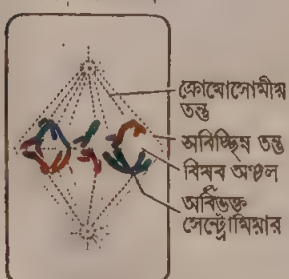 ক্রোমোসোমীয়
তন্তু
অবিচ্ছিন্ন তন্তু
বিষব অঞ্চল
অবিভক্ত
সেন্ট্রোমিয়ার